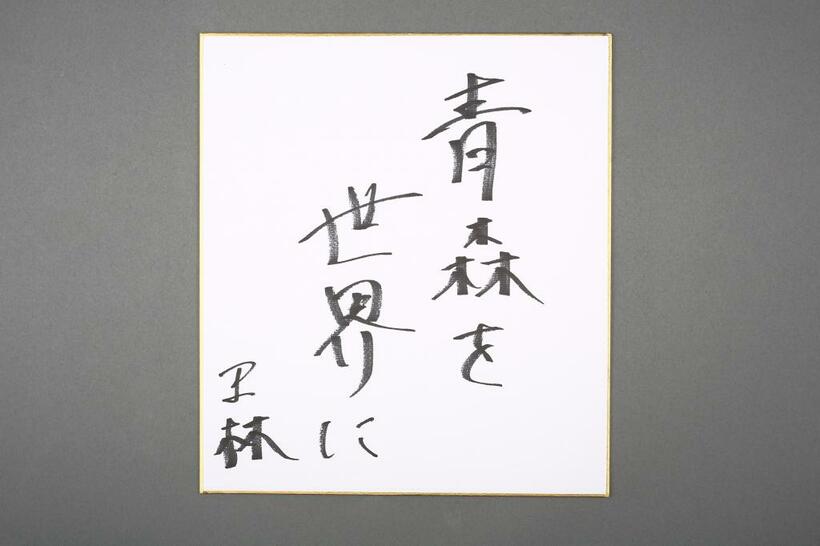 青森を
世界に
林